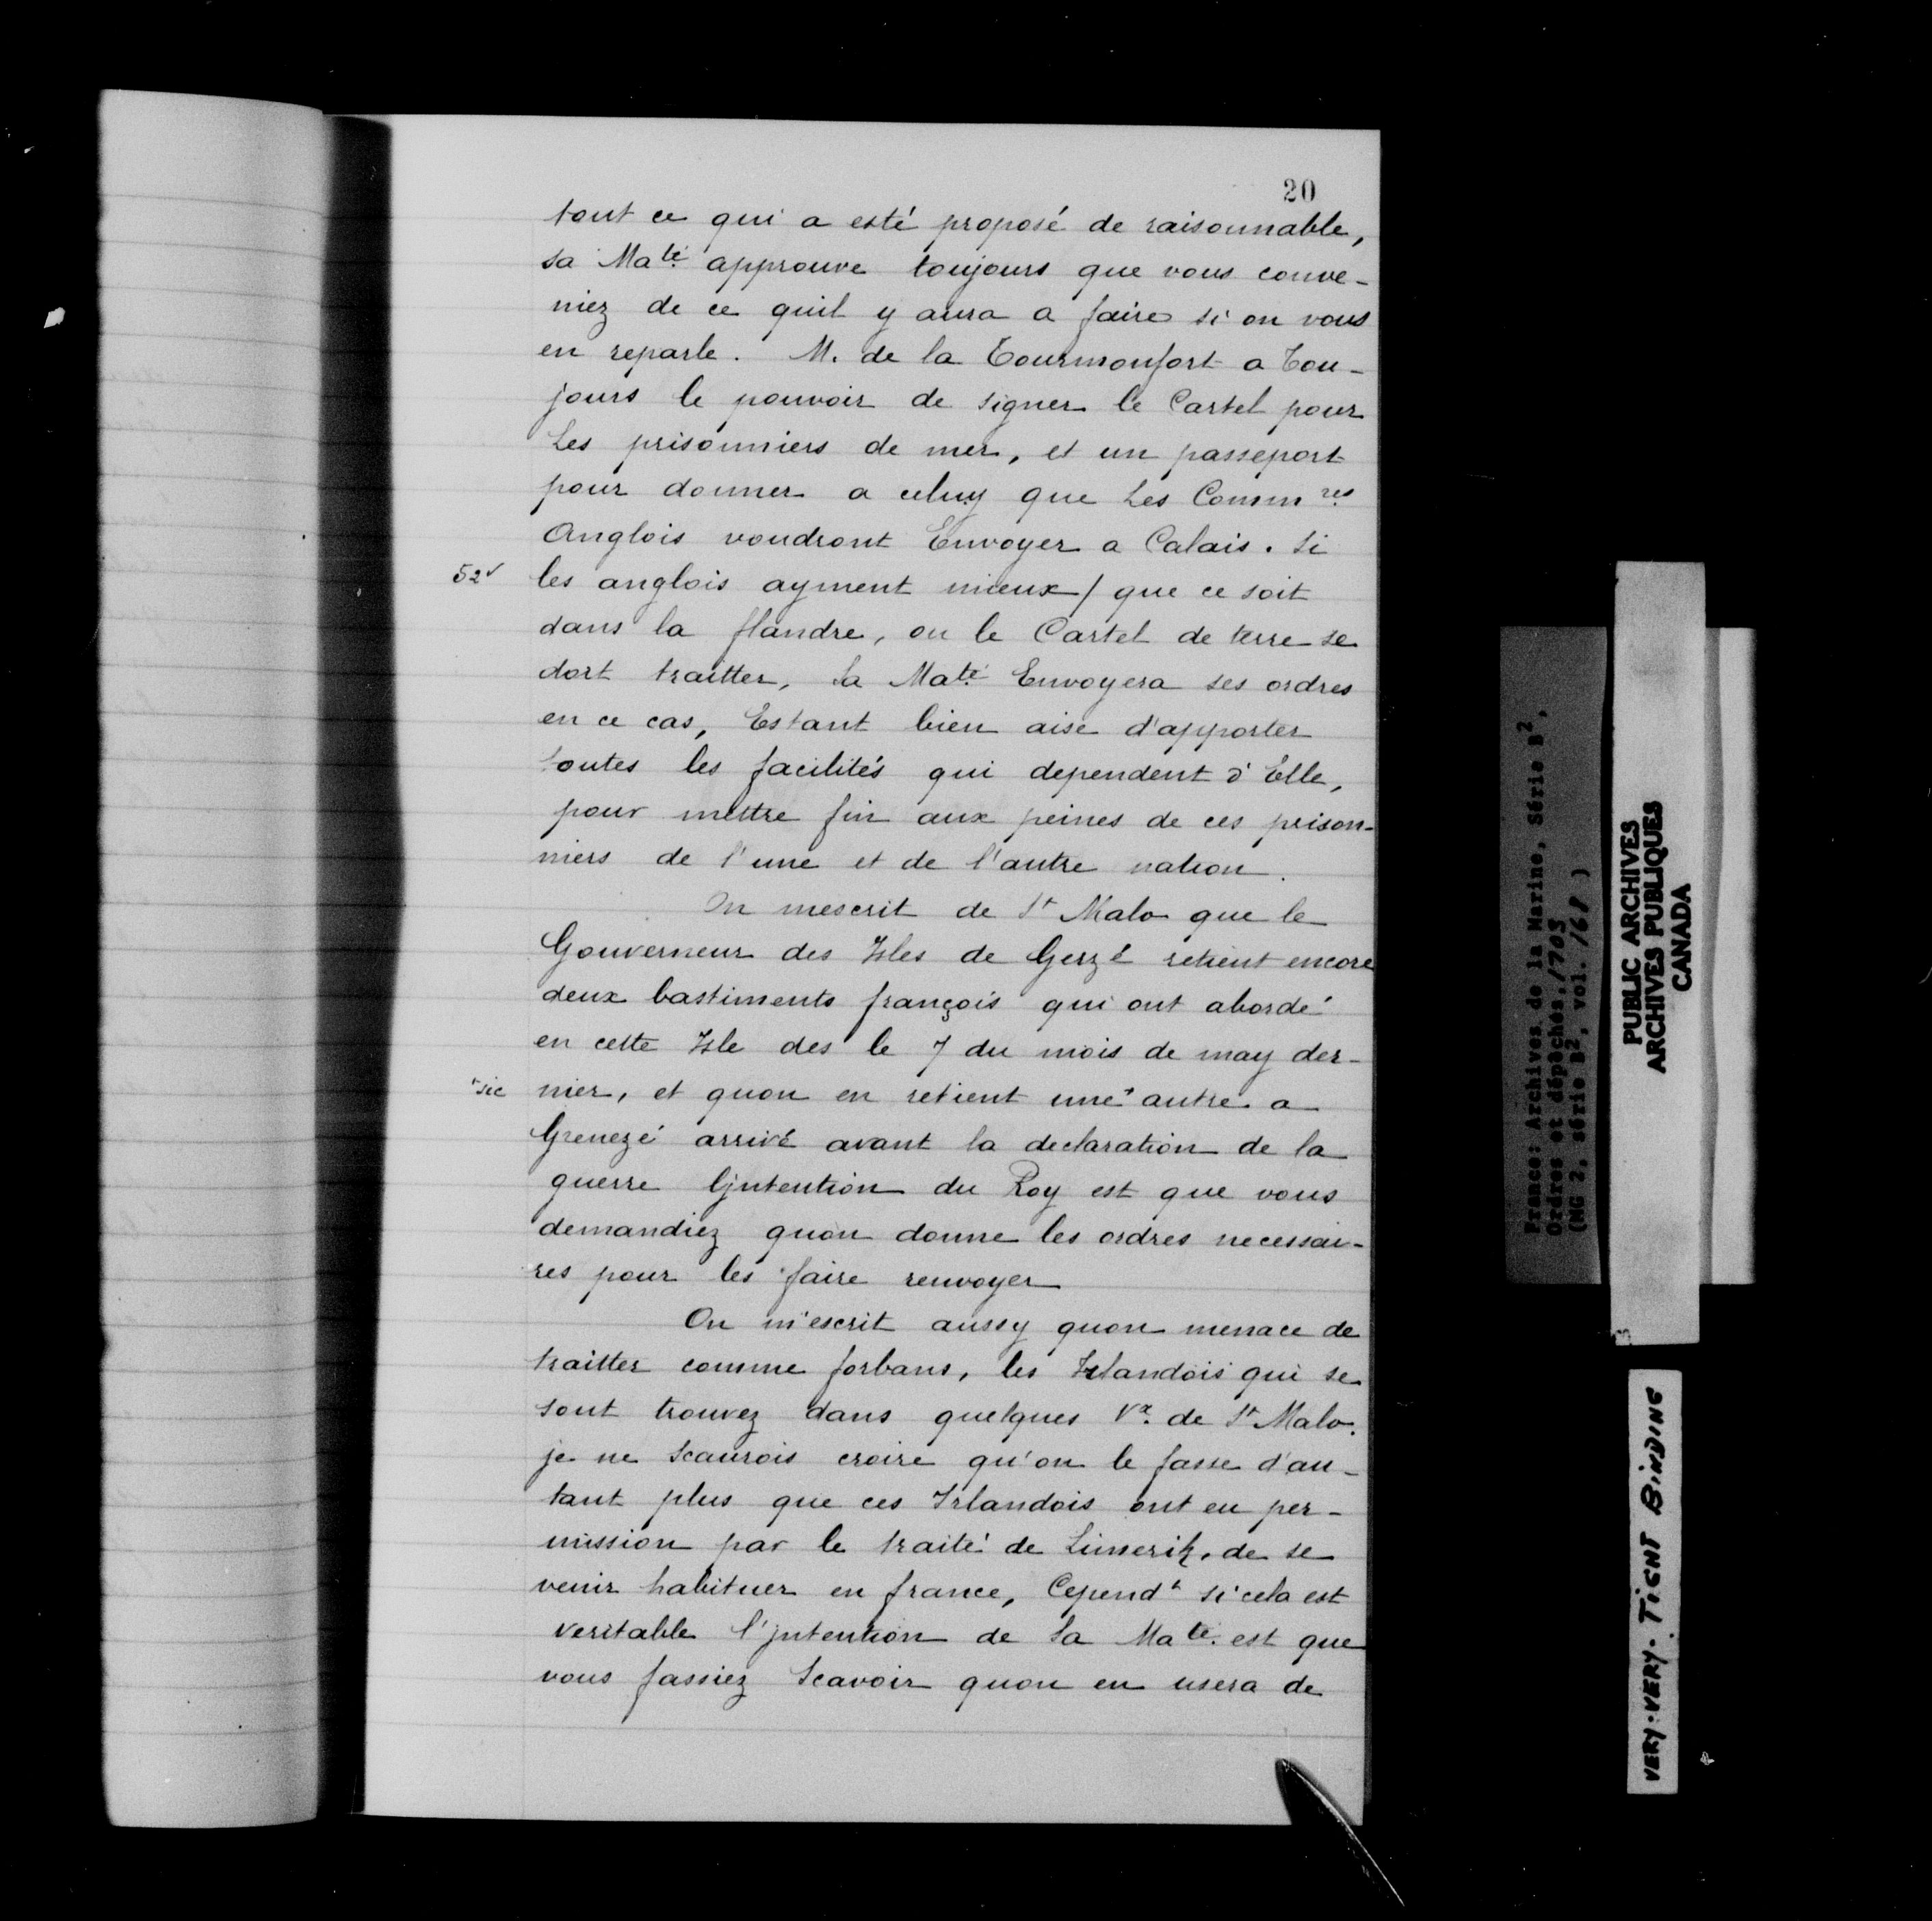 20
tout ce qui a esté proposé de raisonnable,
sa Maté approuve toujours que vous conve-
niez de ce quil y aura a faire si on vous
en reparle. M. de la Tourmonfort a Tou-
jours le pouvoir de signer le Cartel pour
Les prisonniers de mer, et un passeport
pour donner a celuy que Les Commres
Anglois voudront Envoyer a Calais. Si
52v les anglois ayment mieux / que ce soit
dans la flandre, ou le Cartel de terre se
doit traitter, Sa Maté Envoyera ses ordres
en ce cas, Estant bien aise d'apporter
toutes les facilités qui dependent d'Elle,
pour mettre fin aux peines de ces prison-
niers de l'une et de l'autre nation.
On mescrit de St Malo que le
Gouverneur des Isles de Gerzé retient encore
deux bastiments françois qui ont abordé
en cette Isle des le 7 du mois de may der-
+sic nier, et quon en retient une+ autre a
Grenezé arrivé avant la declaration de la
guerre Ljntention du Roy est que vous
demandiez quon donne les ordres necessai-
res pour les faire renvoyer
On m'escrit aussy quon menace de
traitter comme forbans, les Irlandois qui se
sont trouvez dans quelques Vx de St Malo.
je ne Scaurois croire qu'on le fasse d'au-
tant plus que ces Irlandois ont eu per-
mission par le traité de Limerik, de se
venir habituer en france, Cependt si cela est
veritable l'jntention de Sa Maté est que
vous fassiez Scavoir quon en usera de
France: Archives de la Marine, Série B2,
Ordres et dépêches, 1703
(MG 2, série B2, vol. 168)
PUBLIC ARCHIVES
ARCHIVES PUBLIQUES
CANADA
VERY-VERY-TIGHT BINDING